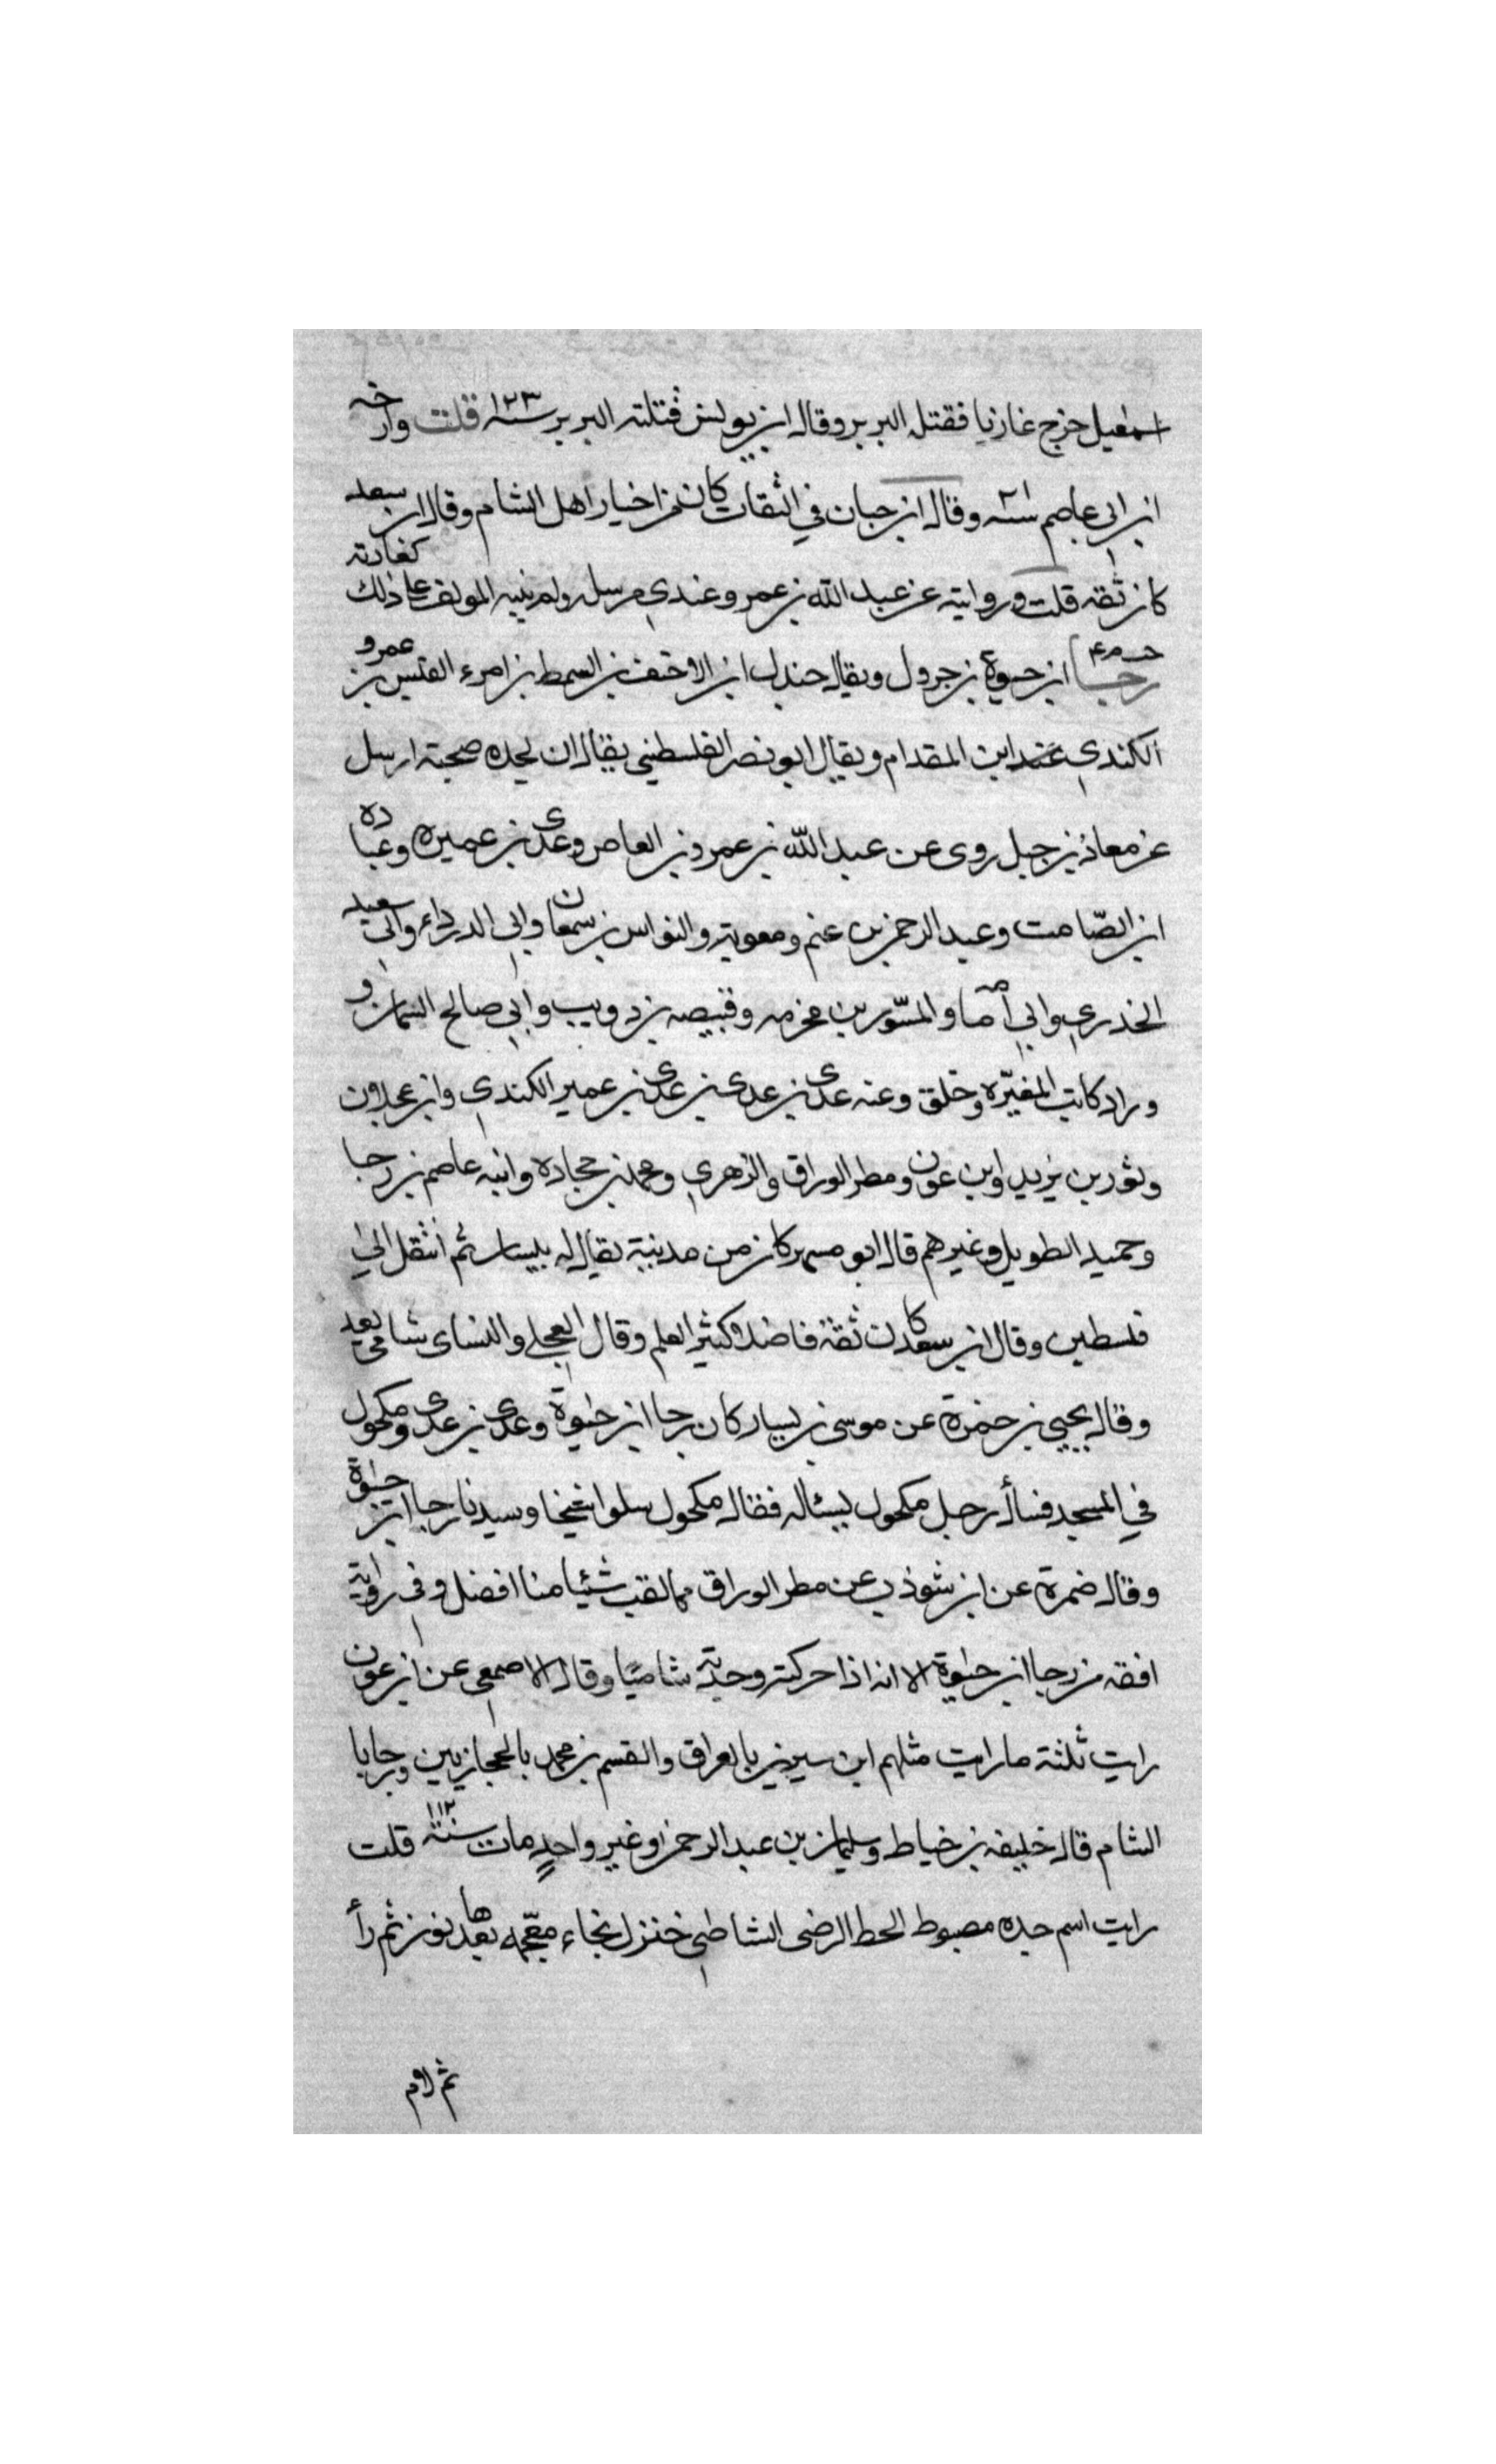 اسمعيل خرج غازيا فقتله البربر وقال ابن يونس قتلته البربر سنة ١٢٣ قلت وارخه
ابن ابي عاصم سنة وقال ابن حبان في الثقات كان من اخيار اهل الشام وقال ابن سعد
كان ثقه قلت وروايته عن عبد الله بن عمرو عندي مرسله ولم ينبه المولف على ذلك كعادته
رجا ابن حيوة بن جرول ويقال جندل ابن الاحنف بن السمط بن امرء القيس بن عمرو
الكندي ابن المقدام ويقال ابو نصر الفلسطيني يقال ان لجده صحبة ارسل
عن معاذ بن جبل روى عن عبد الله بن عمرو بن العاص وعدى بن عميره وعباده
ابن الصّامت وعبد الرحمن بن غنم ومعوية والنواس بن سمعان وابي الدرداء وابي سعيد
الخدري وابي امامه والمسّور بن مخرمه وقبيصه بن ذويب وابي صالح السمان و
وراد كاتب المغيّره وخلق وعنه عدى بن عدى بن عدى بن عمير الكندي وابن عجلان
وثور بن يزيد وابن عون ومطر الوراق والزهري ومحمد بن جحاده وابنه عاصم بن رجا
وحميد الطويل وغيرهم قال ابو مسهر كان من مدينة يقال له بيسان ثم انتقل الى
فلسطين وقال ابن سعد كان ثقة فاضلا كثير العلم وقال العجلي والنساى شامى
وقال يحيى بن حمزة عن موسى بن يسار كان رجا ابن حيوة وعدى بن عدى ومكحول
في المسجد فسأل رجل مكحول يسئاله فقال مكحول سلوا شيخنا وسيدنا رجا ابن حيوة
وقال ضمرة عن ابن شوذب عن مطر الوراق ما لقيت شئيا منا افضل وفى رواية
افقه من رجا ابن حيوة الا انه اذا حركته وجدته شاميا وقال الاصمعى عن ابن عون
رايت ثلثة ما رايت مثلهم ابن سيرين بالعراق والقسم بن محمد بالحجازيين ورجا با
الشام قال خليفه بن خياط وسليمان بن عبد الرحمن وغير واحدٍ مات سنة ١١٢ قلت
رايت اسم جده مضبوط الخط الرضى الشاطبي خنزل بخاء معجمه بعدها نون ثم زأ